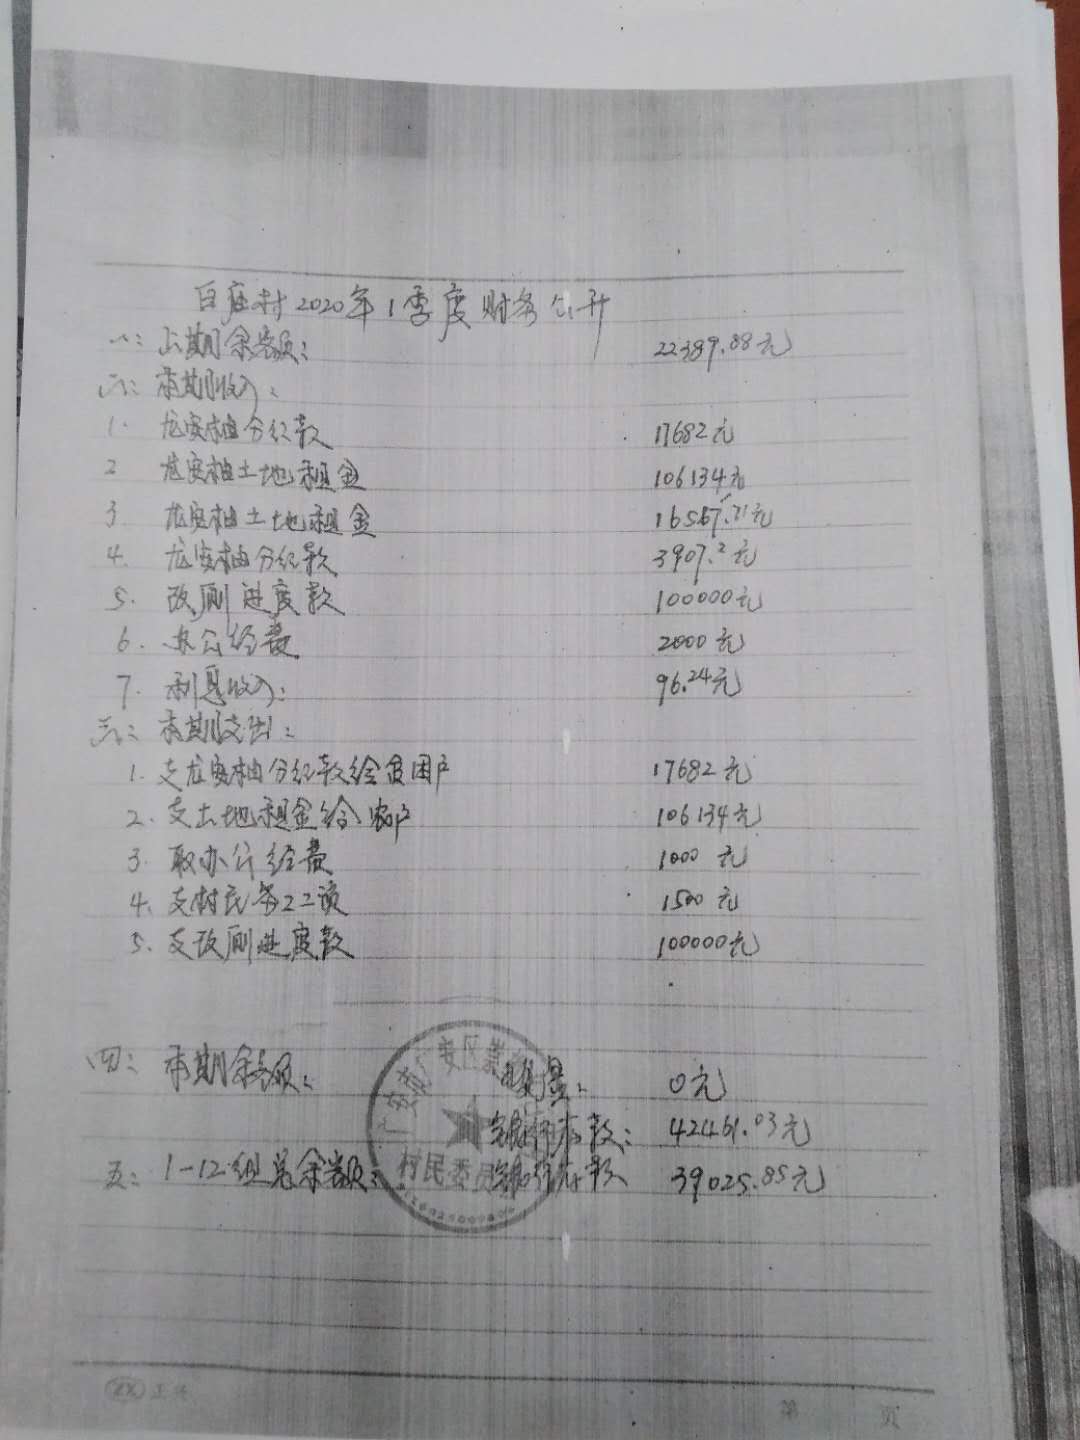 白庙村2020年1季度财务公开
一：上期余额： 22389.88元
二：本期收入：
1. 龙安柚分红款 17682元
2 龙安柚土地租金 106134元
3. 龙安柚土地租金 16567.71元
4. 龙安柚分红款 3907.2元
5. 改厕进度款 100000元
6. 办公经费 2000元
7. 利息收入： 96.24元
三：本期支出：
1. 支龙安柚分红款给贫困户 17682元
2. 支土地租金给农户 106134元
3. 取办公经费 1000元
4. 支村民务工资 1500元
5. 支改厕进度款 100000元
四：本期余额： 现金： 0元
银行存款： 42461.03元
五：1-12组总余额： 银行存款 39025.85元
广安市广安区
村民委员
正兴
第 页